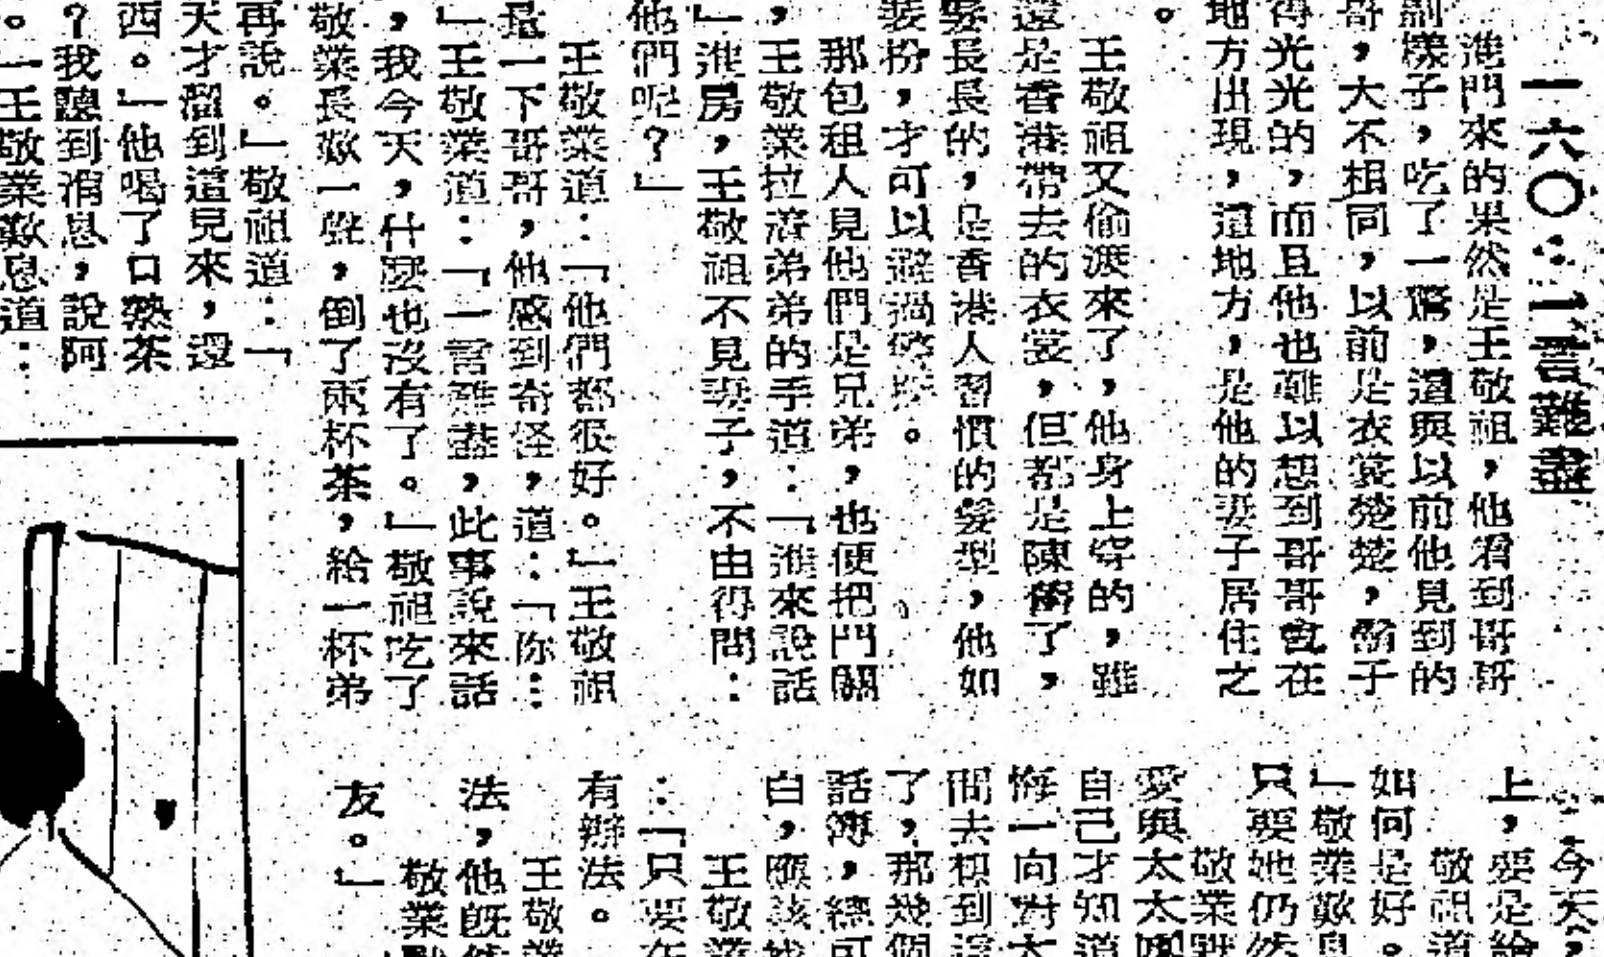 一六〇：一言難盡
進門來的果然是王敬祖，他看到哥哥
樣子，吃了一驚，這與以前他見到的
哥，大不相同，以前是衣裳楚楚，鬍子
得光光的，而且他也難以想到哥哥會在
地方出現，這地方，是他的妻子居住之
。
王敬祖又偷渡來了，他身上穿的，雖
還是香港帶去的衣裳，但都是陳舊了，
髮長長的，是香港人習慣的髮型，他如
裝扮，才可以避過
。
那包租人見他們是兄弟，也便把門關
，王敬業拉着弟弟的手道：「進來說話
」進房，王敬祖不見妻子，不由得問：
他們呢？」
王敬業道：「他們都很好。」王敬祖
是一下哥哥，他感到奇怪，道：「你：
」王敬業道：「一言難盡，此事說來話
，我今天，什麼也沒有了。」敬祖吃了
敬業長歎一聲，倒了兩杯茶，給一杯弟
再說。」敬祖道：「
天才溜到這兒來，還
西。」他喝了口熱茶
？我聽到消息，說阿
。一王敬業歎息道：
今天，
上，要是給
敬祖道
如何是好。
」敬業歎息
只要她仍然
敬業默
愛與太太
自己才知道
悔一向對太
間去想到這
了，那幾個
話傳，總可
白，應該找
王敬業
：「只要在
有辦法。
王敬業
法，他既然
敬業
友。」